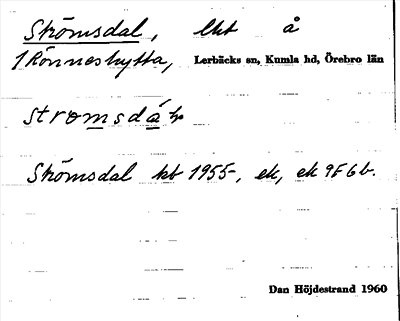 Strömsdal, lht å
1 Rönneshytta, Lerbäcks sn, Kumla hd, Örebro län
stromsdá
Strömsdal kt 1955, ek, ek 9F6b.
Dan Höjdestrand 1960